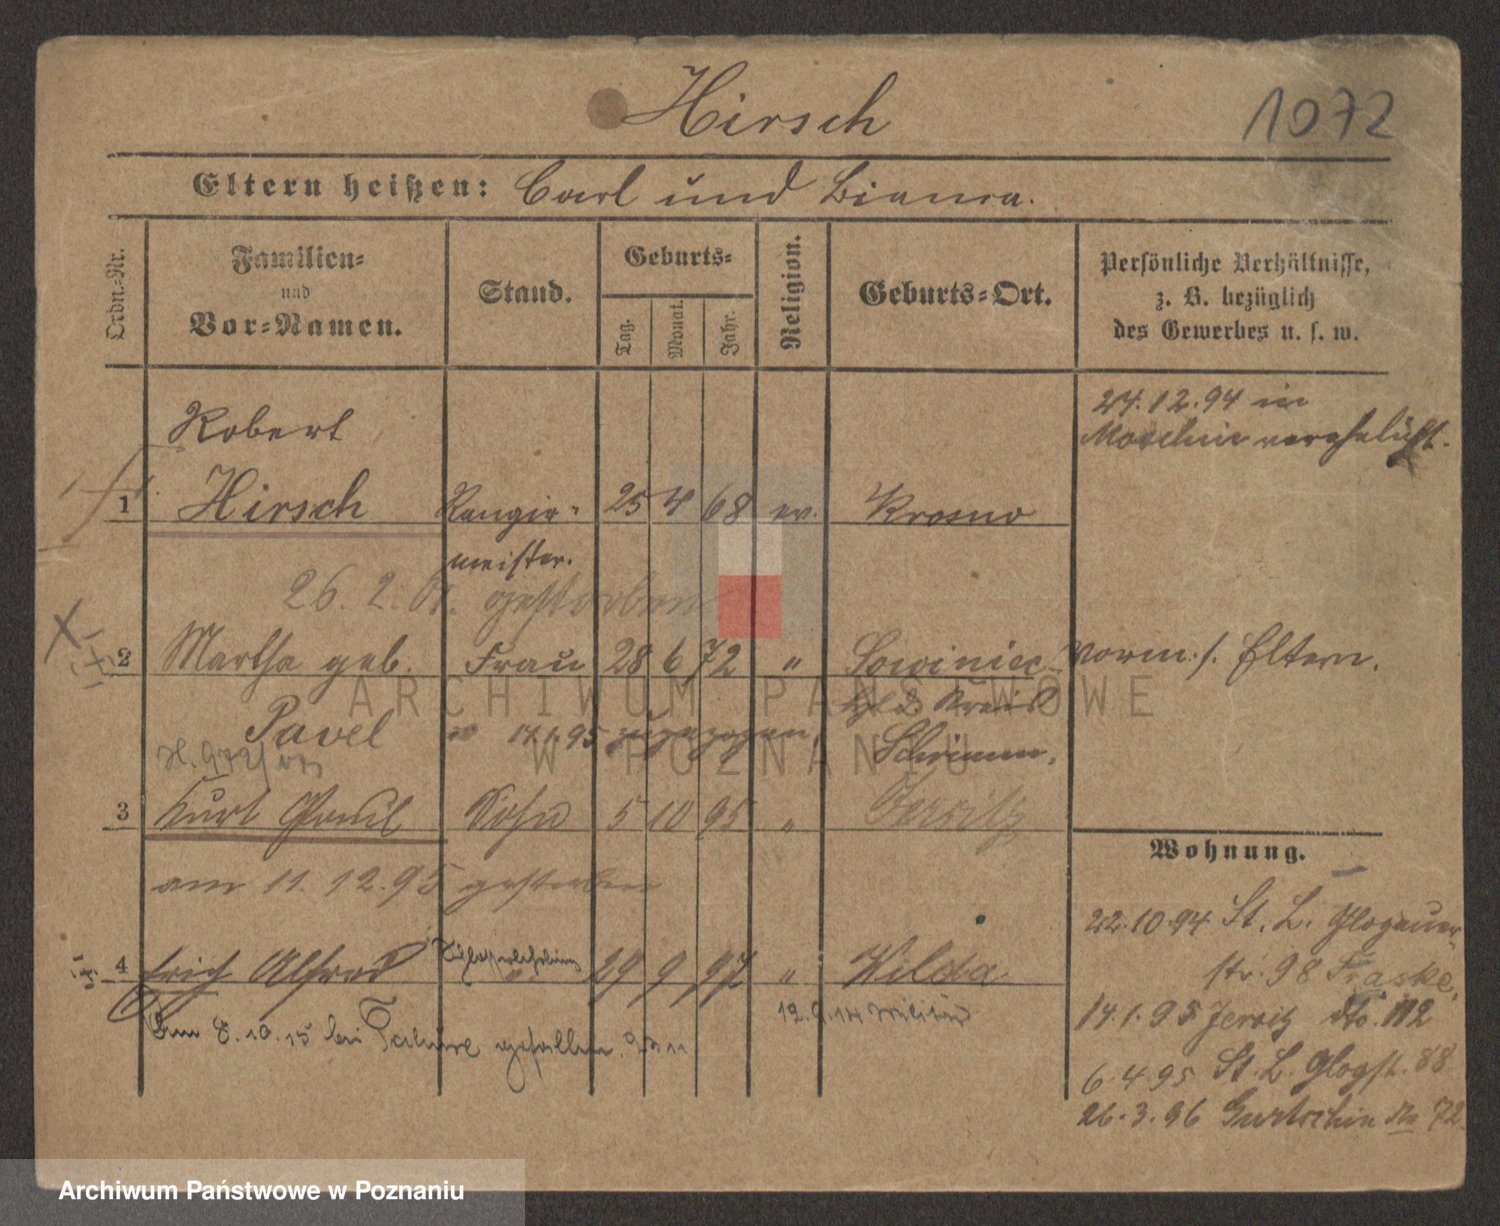 Hirsch
1072
Eltern heißen: Carl und Bianca.
Ordn.-Nr.
Familien-
und
Vor-Namen.
Stand.
Geburts-
Tag.
Monat.
Jahr.
Religion.
Geburts-Ort.
Persönliche Verhältnisse,
z. B. bezüglich
des Gewerbes u. s. w.
24.12.94 in
Moschin verehelicht.
Robert
1 Hirsch Rangir- 25 4 68 ev. Krosno
meister.
26. 2. 01. gestorben
2 Martha geb. Frau 28 6 72 " Sowiniec vorm. s. Eltern.
Pavel
Kreis
14.1.95 zugezogen
Schrimm.
3 Kurt Paul Sohn 5 10 95 " Jersitz
am 11. 12. 95 gestorben
4 Erich Alfred " 29 9 97 " Wilda
12. 9. 14 Militär
Am 8. 10. 15 bei Tahure gefallen.
Wohnung.
22.10.94 St. L. Glogauer-
str. 98 Fraske,
14.1.95 Jersitz No. 112
6.4.95 St. L. Glogst. 88
26.3.96 Gurtschin No 72
ARCHIWUM PAŃSTWOWE
W POZNANIU
Archiwum Państwowe w Poznaniu